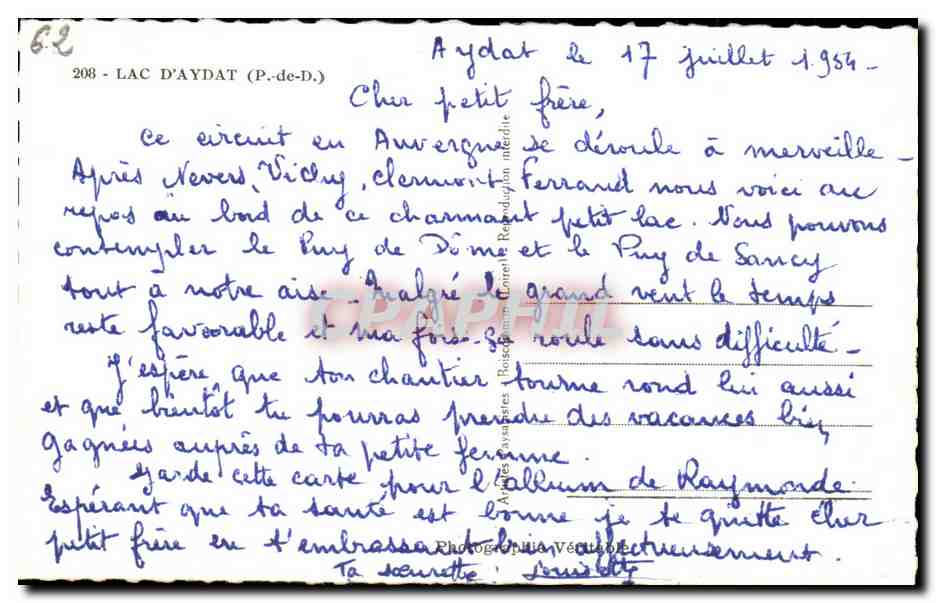 62
Aydat le 17 juillet 1.954 -
208 - LAC D'AYDAT (P.-de-D.)
Cher petit frère,
Ce circuit en Auvergne se déroule à merveille -
Après Nevers, Vichy, Clermont Ferrand nous voici au
repos au bord de ce charmant petit lac. Nous pouvons
contempler le Puy de Dôme et le Puy de Sancy
tout à notre aise - Malgré le grand vent le temps
reste favorable et ma fois ça roule sans difficulté -
J'espère que ton chantier tourne rond lui aussi
et que bientôt tu pourras prendre des vacances bien
gagnées auprès de ta petite femme.
Garde cette carte pour l'album de Raymonde.
Espérant que ta santé est bonne je te quitte cher
petit frère en t'embrassant bien affectueusement.
Ta sœurette : Louisette
Photographie Véritable
Artistes Paysagistes Boiscommun (Loiret) Reproduction interdite
CPAPHIL